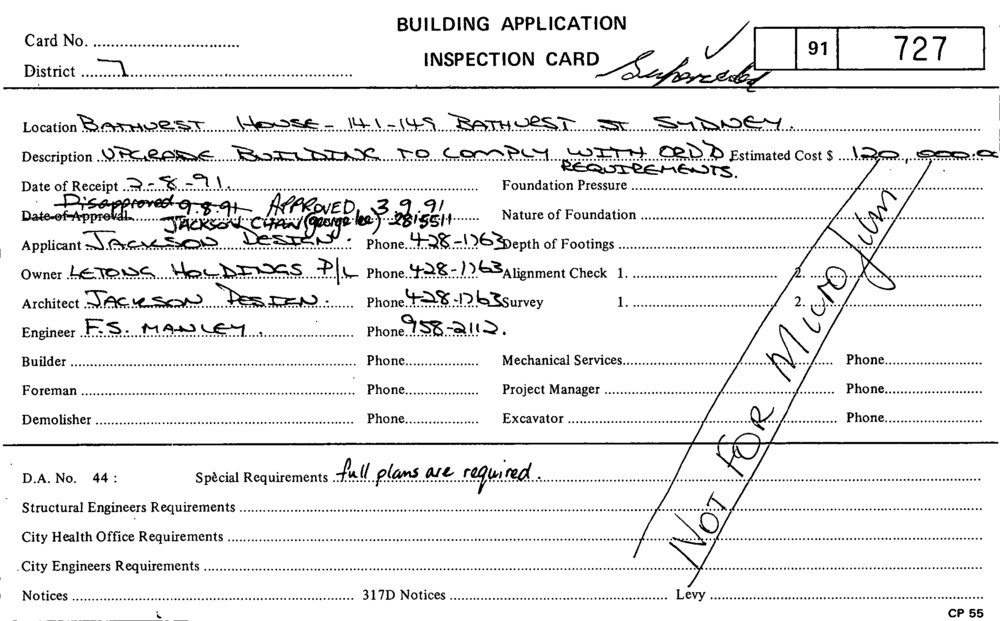 BUILDING APPLICATION
INSPECTION CARD
Card No.
District 7
Superceded
91 727
Location BATHURST HOUSE - 141-149 BATHURST ST SYDNEY.
Description UPGRADE BUILDING TO COMPLY WITH ORD'D REQUIREMENTS. Estimated Cost $ 120,000.0
Date of Receipt 2-8-91. Foundation Pressure
Disapproved 9.8.91 APPROVED, 3.9.91
Date of Approval JACKSON CHAN (george lee) 2815511 Nature of Foundation
Applicant JACKSON DESIGN. Phone 428-1763 Depth of Footings
Owner LETONG HOLDINGS P/L Phone 428-1763 Alignment Check 1. 2.
Architect JACKSON DESIGN. Phone 428-1763 Survey 1. 2.
Engineer F.S. MANLEY. Phone 958-2112.
Builder Phone Mechanical Services Phone
Foreman Phone Project Manager Phone
Demolisher Phone Excavator Phone
NOT FOR Microfilm
D.A. No. 44 : Special Requirements full plans are required.
Structural Engineers Requirements
City Health Office Requirements
City Engineers Requirements
Notices 317D Notices Levy
CP 55